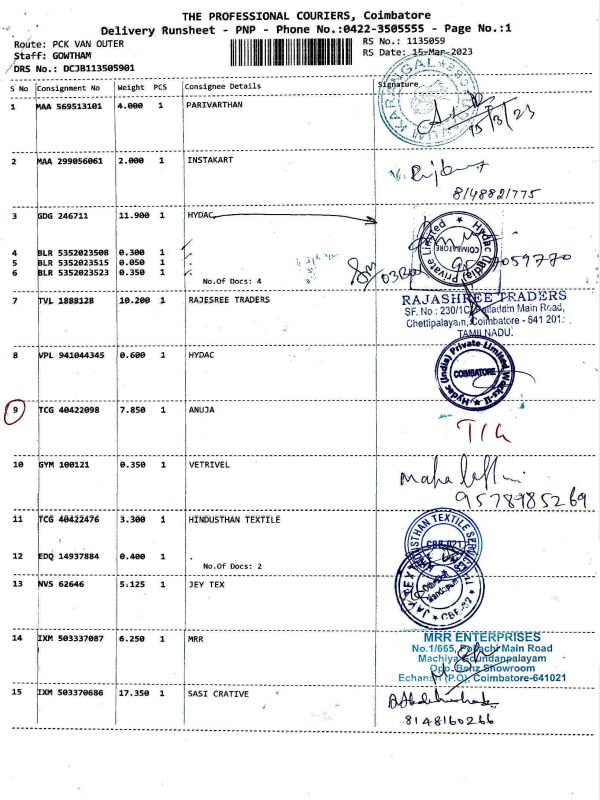 THE PROFESSIONAL COURIERS, Coimbatore
Delivery Runsheet - PNP - Phone No.:0422-3505555 - Page No.:1
Route: PCK VAN OUTER
RS No.: 1135059
Staff: GOWTHAM
RS Date: 15-Mar-2023
DRS No.: DCJB113505901
S No Consignment No Weight PCS Consignee Details Signature
1 MAA 569513101 4.000 1 PARIVARTHAN
15/3/23
2 MAA 299056061 2.000 1 INSTAKART
8148821775
3 GDG 246711 11.900 1 HYDAC
Hydac (India) Private Limited
COIMBATORE
4 BLR 5352023508 0.300 1
5 BLR 5352023515 0.050 1
6 BLR 5352023523 0.350 1
No.Of Docs: 4
7 TVL 1888128 10.200 1 RAJESREE TRADERS
RAJASHREE TRADERS
SF. No : 230/1C, Palladam Main Road,
Chettipalayam, Coimbatore - 641 201.
TAMILNADU.
8 VPL 941044345 0.600 1 HYDAC
Hydac (India) Private Limited Works-II
COIMBATORE
9 TCG 40422098 7.850 1 ANUJA
10 GYM 100121 0.350 1 VETRIVEL
9578985269
11 TCG 40422476 3.300 1 HINDUSTHAN TEXTILE
HINDUSTHAN TEXTILE SERVICES
CBE-021
12 EDQ 14937884 0.400 1
No.Of Docs: 2
13 NVS 62646 5.125 1 JEY TEX
14 IXM 503337087 6.250 1 MRR
MRR ENTERPRISES
No.1/665, Pollachi Main Road
Machiya Goundanpalayam
Opp. Benz Showroom
Echanari (P.O), Coimbatore-641021
15 IXM 503370686 17.350 1 SASI CRATIVE
8148160266